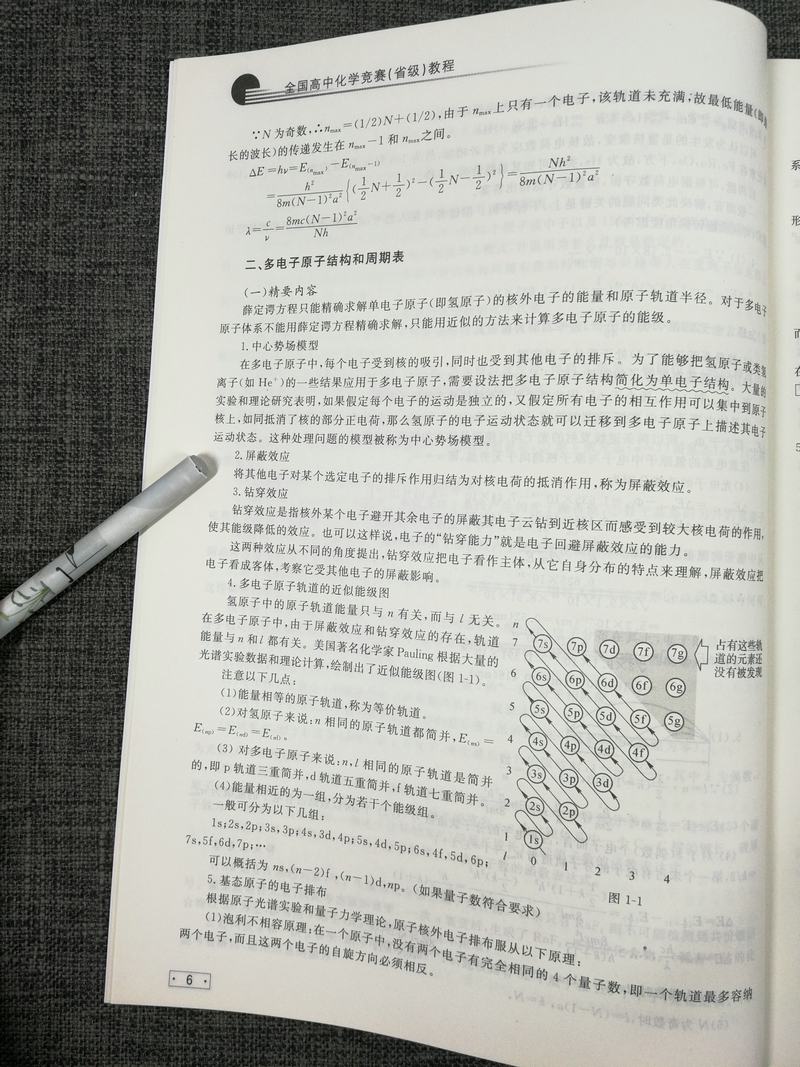 全国高中化学竞赛(省级)教程
∵N 为奇数,∴nmax=(1/2)N+(1/2),由于 nmax上只有一个电子,该轨道未充满,故最低能量(即
长的波长)的传递发生在 nmax-1 和 nmax之间。
ΔE=hν=E(nmax)-E(nmax-1)
=h²/8m(N-1)²a²{(1/2N+1/2)²-(1/2N-1/2)²}=Nh²/8m(N-1)²a²
λ=c/ν=8mc(N-1)²a²/Nh
二、多电子原子结构和周期表
(一)精要内容
薛定谔方程只能精确求解单电子原子(即氢原子)的核外电子的能量和原子轨道半径。对于多电子
原子体系不能用薛定谔方程精确求解,只能用近似的方法来计算多电子原子的能级。
1.中心势场模型
在多电子原子中,每个电子受到核的吸引,同时也受到其他电子的排斥。为了能够把氢原子或类氢
离子(如 He⁺)的一些结果应用于多电子原子,需要设法把多电子原子结构简化为单电子结构。大量的
实验和理论研究表明,如果假定每个电子的运动是独立的,又假定所有电子的相互作用可以集中到原子
核上,如同抵消了核的部分正电荷,那么氢原子的电子运动状态就可以迁移到多电子原子上描述其电子
运动状态。这种处理问题的模型被称为中心势场模型。
2.屏蔽效应
将其他电子对某个选定电子的排斥作用归结为对核电荷的抵消作用,称为屏蔽效应。
3.钻穿效应
钻穿效应是指核外某个电子避开其余电子的屏蔽其电子云钻到近核区而感受到较大核电荷的作用,
使其能级降低的效应。也可以这样说,电子的“钻穿能力”就是电子回避屏蔽效应的能力。
这两种效应从不同的角度提出,钻穿效应把电子看作主体,从它自身分布的特点来理解,屏蔽效应把
电子看成客体,考察它受其他电子的屏蔽影响。
4.多电子原子轨道的近似能级图
氢原子中的原子轨道能量只与 n 有关,而与 l 无关。
在多电子原子中,由于屏蔽效应和钻穿效应的存在,轨道
能量与 n 和 l 都有关。美国著名化学家 Pauling 根据大量的
光谱实验数据和理论计算,绘制出了近似能级图(图 1-1)。
注意以下几点:
(1)能量相等的原子轨道,称为等价轨道。
(2)对氢原子来说:n 相同的原子轨道都简并,E(ns)=
E(np)=E(nd)=E(nf)。
(3)对多电子原子来说:n,l 相同的原子轨道是简并
的,即 p 轨道三重简并,d 轨道五重简并,f 轨道七重简并。
(4)能量相近的为一组,分为若干个能级组。
一般可分为以下几组:
1s;2s,2p;3s,3p;4s,3d,4p;5s,4d,5p;6s,4f,5d,6p;
7s,5f,6d,7p;…
可以概括为 ns,(n-2)f,(n-1)d,np。(如果量子数符合要求)
n
7 7s 7p 7d 7f 7g
占有这些轨
道的元素还
没有被发现
6 6s 6p 6d 6f 6g
5 5s 5p 5d 5f 5g
4 4s 4p 4d 4f
3 3s 3p 3d
2 2s 2p
1 1s
l 0 1 2 3 4
图 1-1
5.基态原子的电子排布
根据原子光谱实验和量子力学理论,原子核外电子排布服从以下原理:
(1)泡利不相容原理:在一个原子中,没有两个电子有完全相同的 4 个量子数,即一个轨道最多容纳
两个电子,而且这两个电子的自旋方向必须相反。
· 6 ·
系
可
形
而
在
5